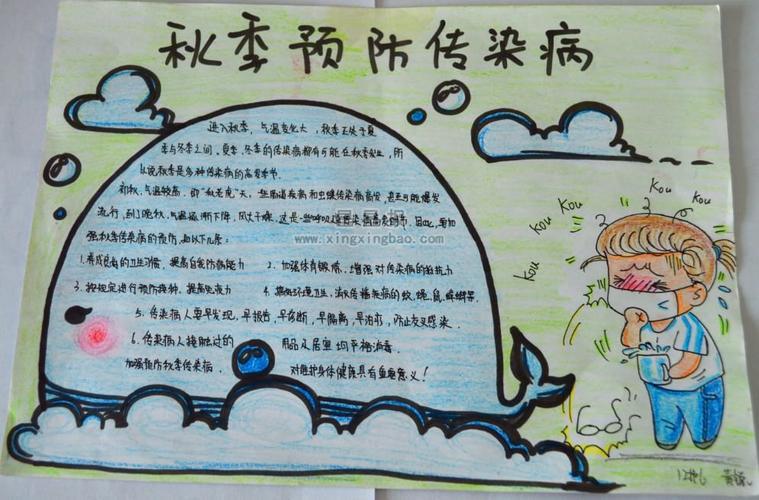 秋季预防传染病
进入秋季，气温变化大，秋季正处于夏
季与冬季之间，夏季、冬季的传染病都有可能在秋季发生，所
以说秋季是多种传染病的高发季节。
初秋，气温较高，即“秋老虎”天，一些肠道疾病和虫媒传染病高发，甚至可能爆发
流行，到了晚秋，气温逐渐下降，风大干燥，这是一些呼吸道传染病高发的时节，因此，要加
强秋季传染病的预防，如以下几条：
www.xingxingbao.com
1.养成良好的卫生习惯，提高自我防病能力 2.加强体育锻炼，增强对传染病的抵抗力
3.按规定进行预防接种，提高免疫力 4.搞好环境卫生，消灭传播疾病的蚊、蝇、鼠、蟑螂等.
5.传染病人要早发现，早报告，早诊断，早隔离，早治疗，防止交叉感染.
6.传染病人接触过的 用品及居室均严格消毒.
加强预防秋季传染病. 对维护身体健康具有重要意义！
Kou
Kou
Kou
Kou
Kou
Kou